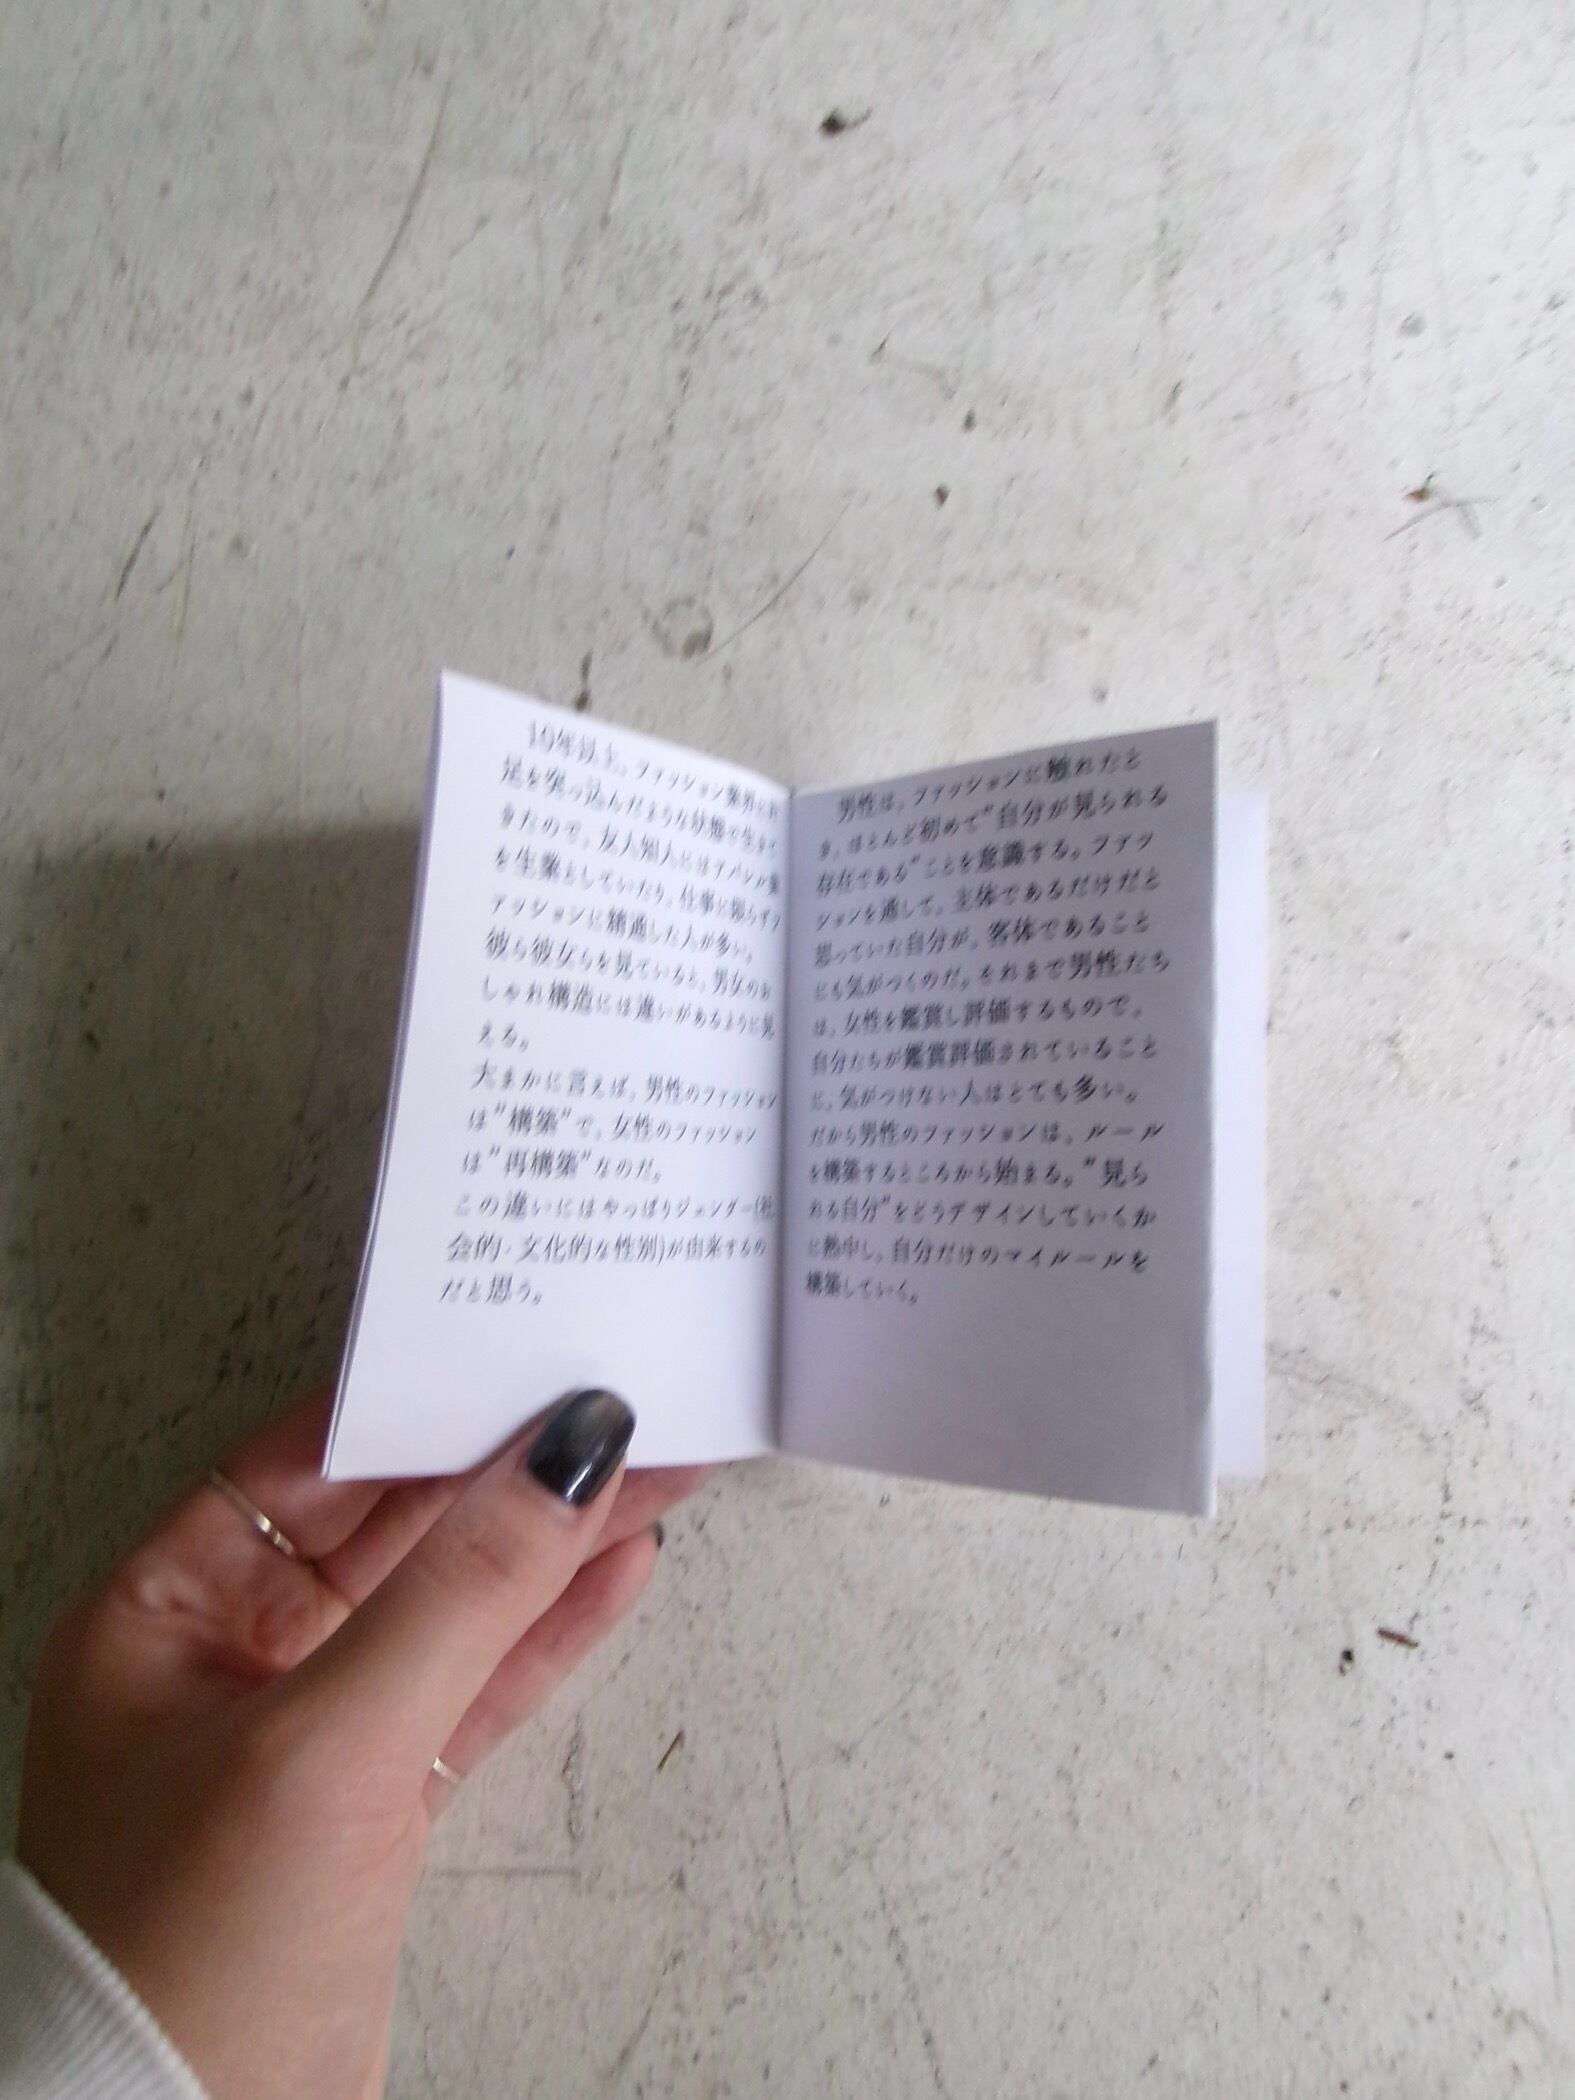 10年以上、ファッション業界に片
足を突っ込んだような状態で生きて
きたので、友人知人にはアパレル業
を生業としていたり、仕事に限らずフ
ァッションに精通した人が多い。
彼ら彼女らを見ていると、男女のお
しゃれ構造には違いがあるように見
える。
大まかに言えば、男性のファッション
は"構築"で、女性のファッション
は"再構築"なのだ。
この違いにはやっぱりジェンダー(社
会的・文化的な性別)が由来するの
だと思う。
男性は、ファッションに触れたと
き、ほとんど初めて"自分が見られる
存在である"ことを意識する。ファッ
ションを通して、主体であるだけだと
思っていた自分が、客体であること
にも気がつくのだ。それまで男性たち
は、女性を鑑賞し評価するもので、
自分たちが鑑賞評価されていること
に、気がつけない人はとても多い。
だから男性のファッションは、ルール
を構築するところから始まる。"見ら
れる自分"をどうデザインしていくか
に熱中し、自分だけのマイルールを
構築していく。